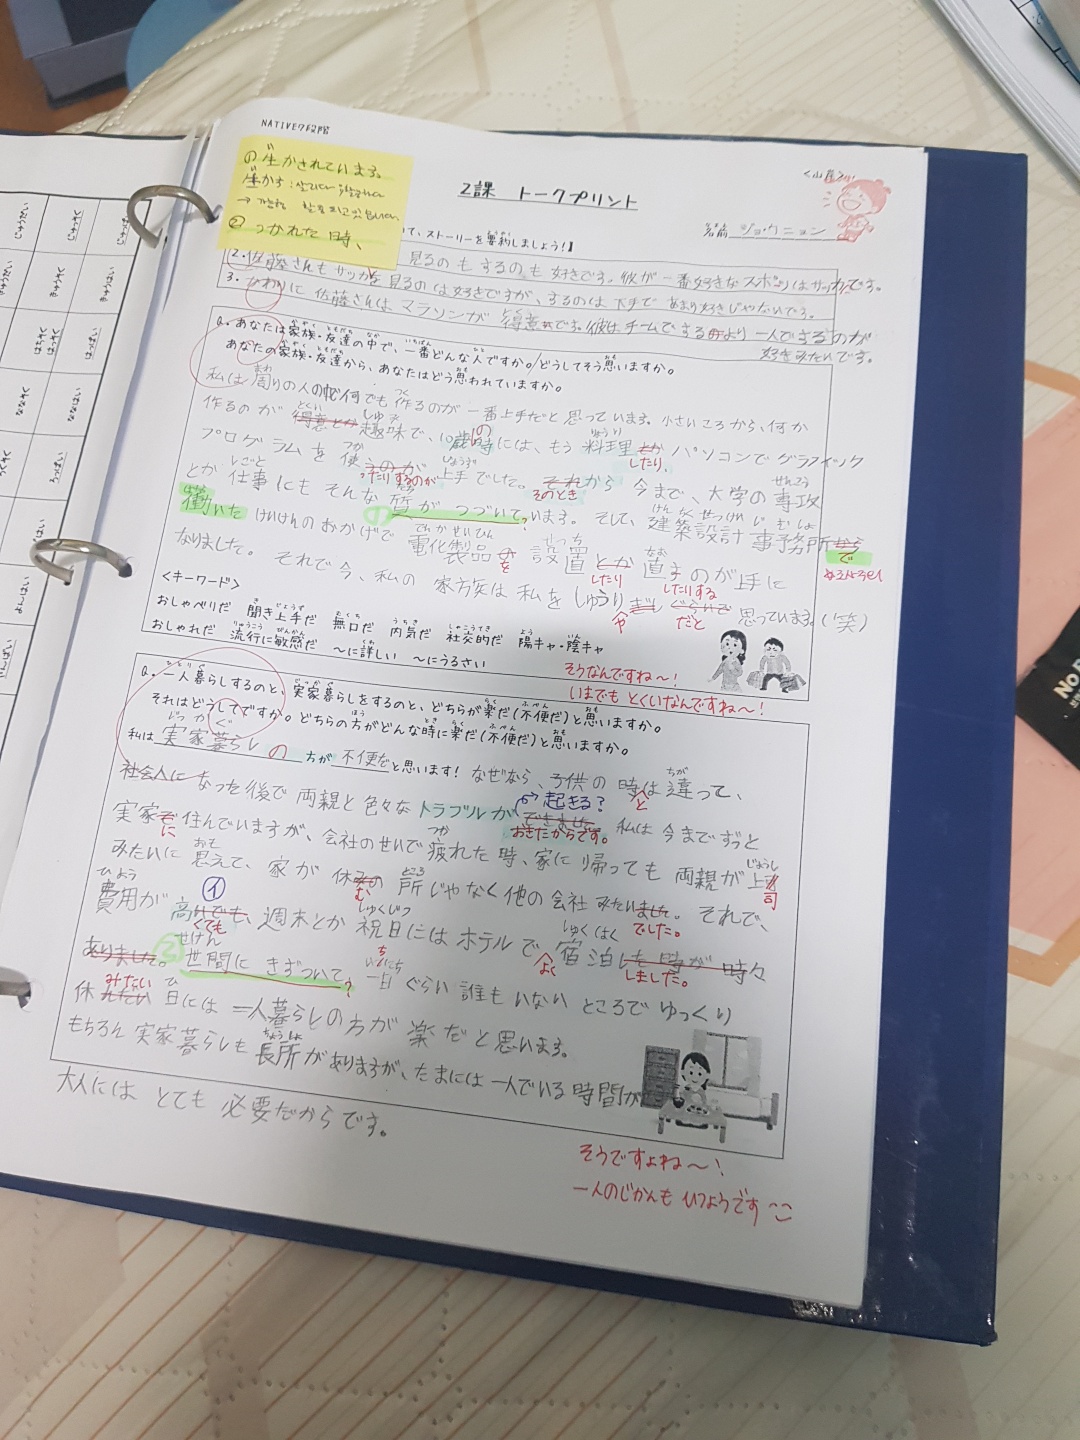 NATIVE7段階
2課 トークプリント
① 生かされています。
生かす:
→
② つかれた時、
名前 ジョウニョン
て、ストーリーを要約しましょう!】
2.佐藤さんもサッカーを見るのもするのも好きです。彼が一番好きなスポーツはサッカーです。
3. かわりに佐藤さんは、マラソンが得意です。彼はチームでするより一人でするのが
見るのは好きですが、するのは下手であまり好きじゃないです。
好きみたいです。
Q. あなたは家族・友達の中で、一番どんな人ですか。/どうしてそう思いますか。
あなたの家族・友達から、あなたはどう思われていますか。
私は周りの人の中で何でも作るのが一番上手だと思っています。小さいころから、何か
作るのが得意とか趣味で、10歳の時には、もう料理とか したり、パソコンでグラフィック
プログラムを使うのが ったりするのが 上手でした。それから そのとき 今まで、大学の専攻
とか仕事にもそんな質がつづいています。そして、建築設計事務所から で
働いたけいけんのおかげで電化製品のを設置とか したり 直すのが したりする 上手に
なりました。それで今、私の家族は私をしゅうりぎし や ぐらいで だと 思っています。(笑)
<キーワード>
おしゃべりだ 聞き上手だ 無口だ 内気だ 社交的だ 陽キャ・陰キャ
おしゃれだ 流行に敏感だ ~に詳しい ~にうるさい
そうなんですね~!
いまでも とくいなんですね~!
Q. 一人暮らしするのと、実家暮らしをするのと、どちらが楽だ(不便だ)と思いますか。
それはどうしてですか。どちらの方がどんな時に楽だ(不便だ)と思いますか。
私は 実家暮らし の 方が 不便だ と思います! なぜなら、子供の時は と 違って、
社会人になった後で両親と色々なトラブルができました 起きる? おきたからです。 私は今までずっと
実家で に 住んでいますが、会社のせいで疲れた時、家に帰っても両親が上司
みたいに思えて、家が休みの む 所じゃなく他の会社みたいました でした。 それで、
費用が高いでも くても、週末とか祝日にはホテルで宿泊した時が しました。 時々
ありました。② 世間にきずついて? 一日ぐらい誰もいないところでゆっくり
休れたい みたい 日には一人暮らしの方が楽だと思います。
もちろん実家暮らしも長所がありますが、たまには一人でいる時間が
大人にはとても必要だからです。
そうですよね~!
一人のじかんも ひつようです